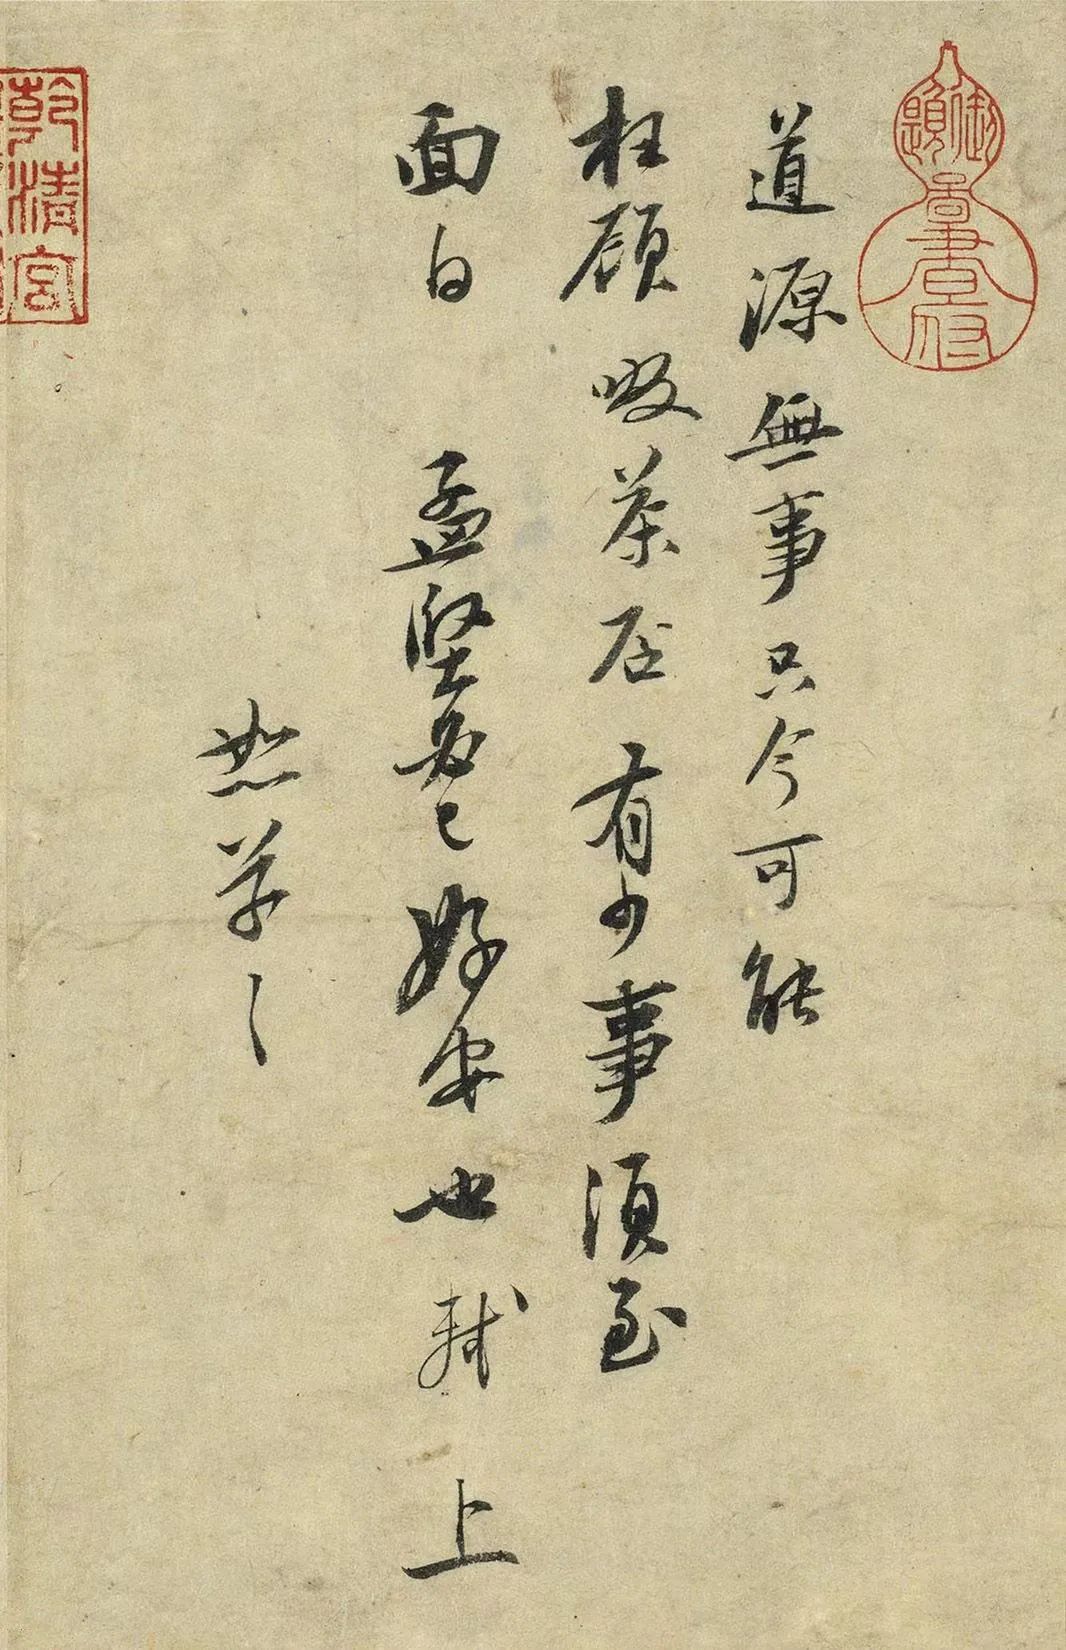 道源無事只今可能
枉顧啜茶否有少事須至
面白孟堅必已好安也軾上
恕草草
乾清宮